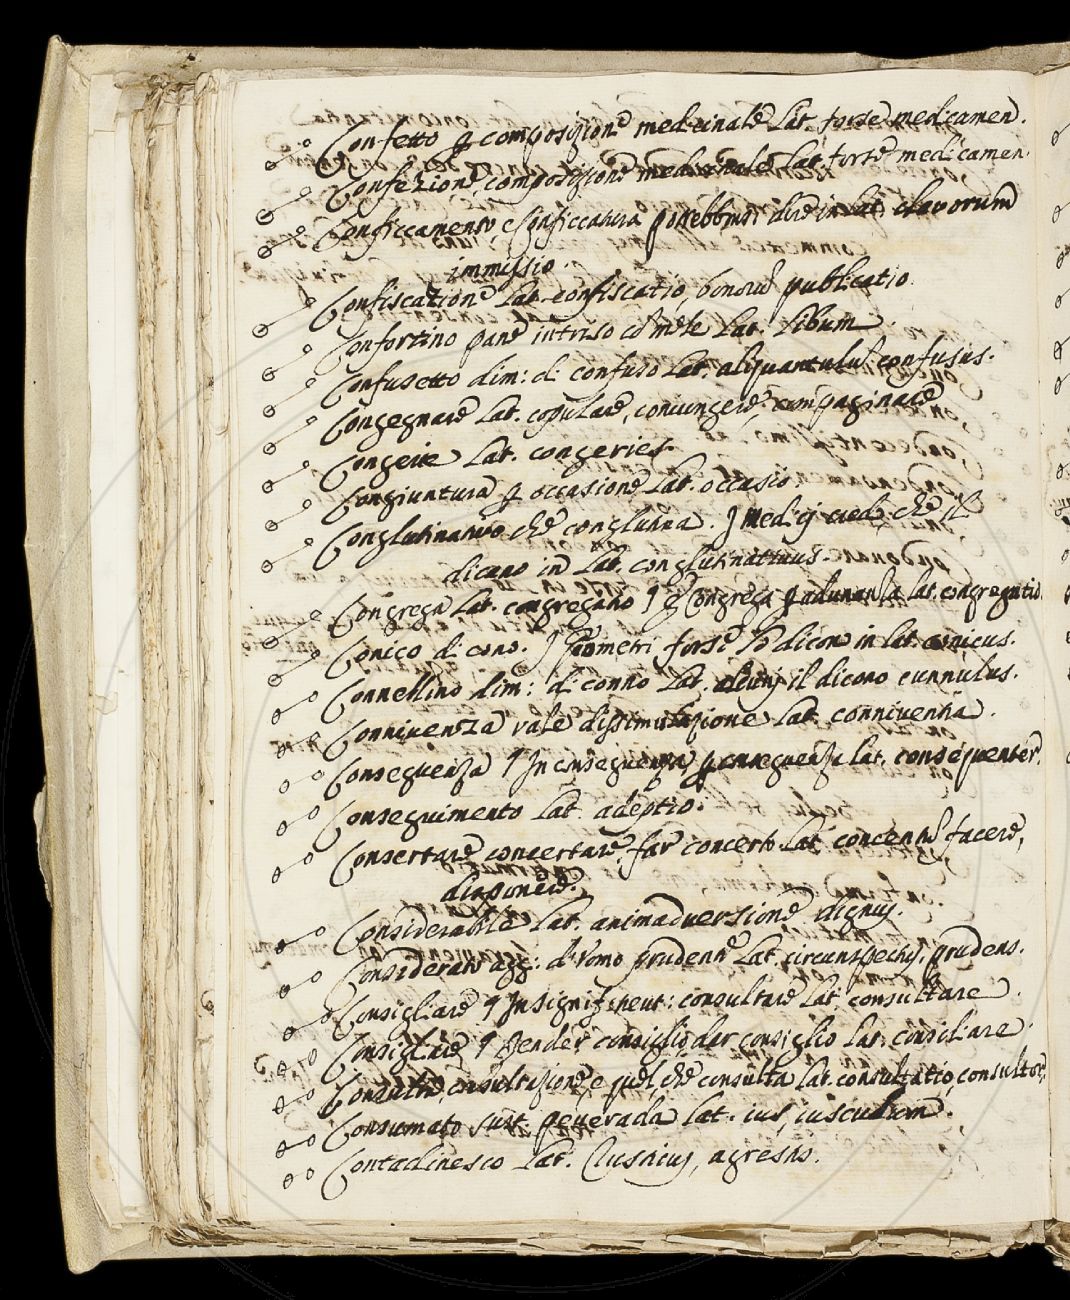 Confetto p composizione medicinale Lat. forse medicamen.
Confezione, composizione medicinale Lat. forse medicamen.
Conficcamento, e conficcatura potrebbesi dire in Lat. clavorum
immissio.
Confiscazione Lat. confiscatio, bonorum publicatio.
Confortino pane intriso co mele Lat. libum
Confusetto dim: di confuso Lat. aliquantulum confusus.
Congegnare Lat. copulare, coniungere, compaginare
Congerie Lat. congeries.
Congiuntura p occasione Lat. occasio.
Conglutinativo che conglutina. I Medici credo che il
dicano in Lat. conglutinativus.
Congrega Lat. congregatio
Conico di cono. I Geometri forse lo dicon in Lat. conicus.
Connellino dim: di conno Lat. alcuni il dicono cunnulus.
Connivenza vale dissimulazione Lat. conniventia.
Conseguenza ¶ In conseguenza, p conseguenza Lat. consequenter.
Conseguimento Lat. adeptio.
Consertare concertare, far concerto Lat. concentum facere,
disponere.
Considerabile Lat. animadversione dignus.
Considerato agg: d'Uomo prudente Lat. circunspectus, prudens.
Consigliare ¶ In signif. neut: consultare Lat. consultare
Consigliare ¶ Render consiglio, dar consiglio Lat. consiliare
Consulta, consultazione, e quel, che consulta Lat. consultatio, consultor.
Consumato sust. peverada Lat. ius, iusculum.
Contadinesco Lat. rusticus, agrestis.